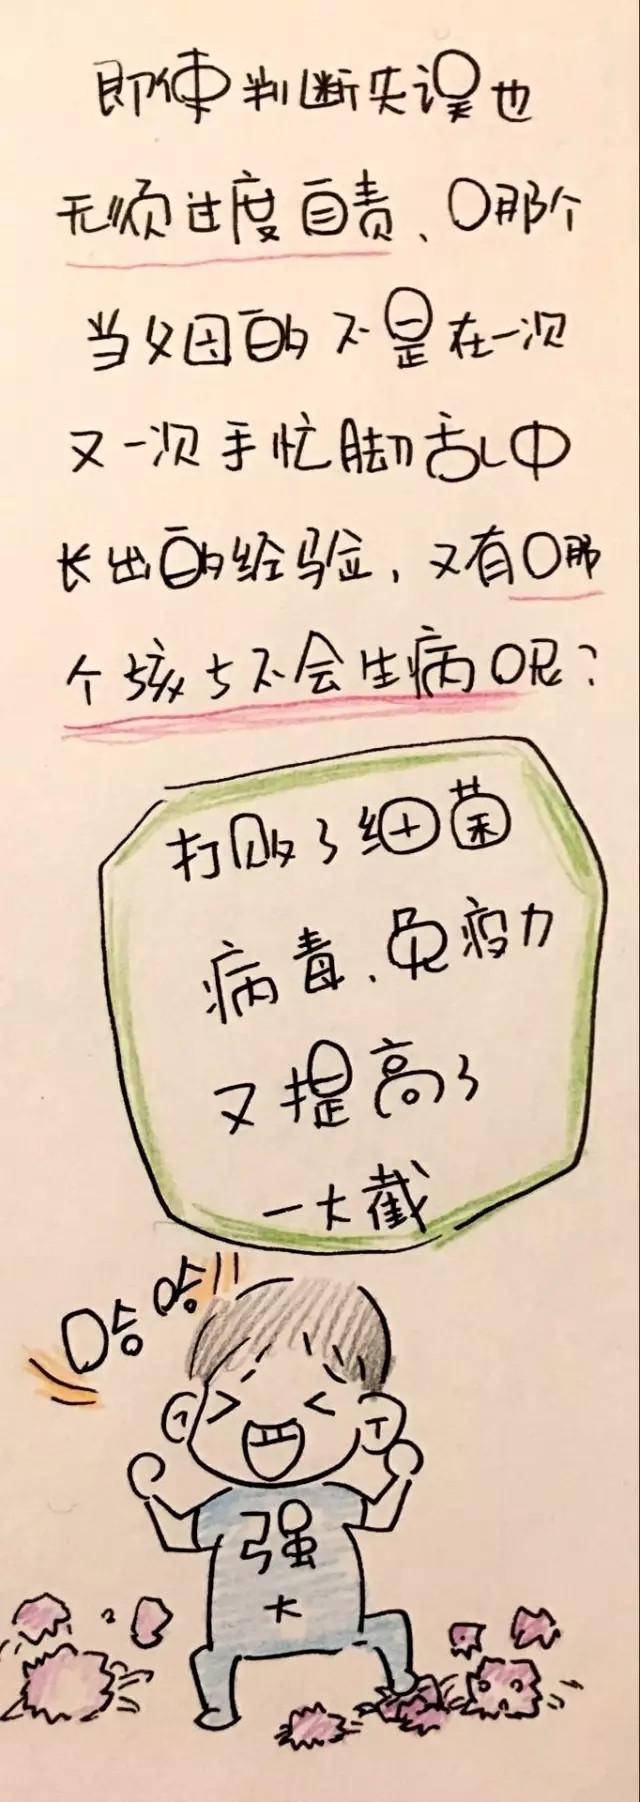 即使判断失误也
无须过度自责、哪个
当父母的不是在一次
又一次手忙脚乱中
长出的经验，又有哪
个孩子不会生病呢？
打败了细菌
病毒、免疫力
又提高了
一大截
哈哈
强
大